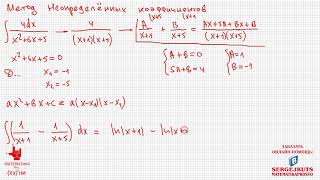 Метод Неопределённых коэффициентов
∫ 4dx / (x²+6x+5) → 4 / ((x+1)(x+5)) → A/(x+1) + B/(x+5) = (Ax+5A+Bx+B) / ((x+1)(x+5))
x²+6x+5=0
D... x₁=-1
x₂=-5
{ A+B=0
5A+B=4
{ A=1
B=-1
ax²+Bx+c = a(x-x₁)(x-x₂)
∫ (1/(x+1) - 1/(x+5)) dx = ln(x+1) - ln(x
ЗАКАЗАТЬ
ОНЛАЙН-ПОМОЩЬ:
SERGEJKUTS